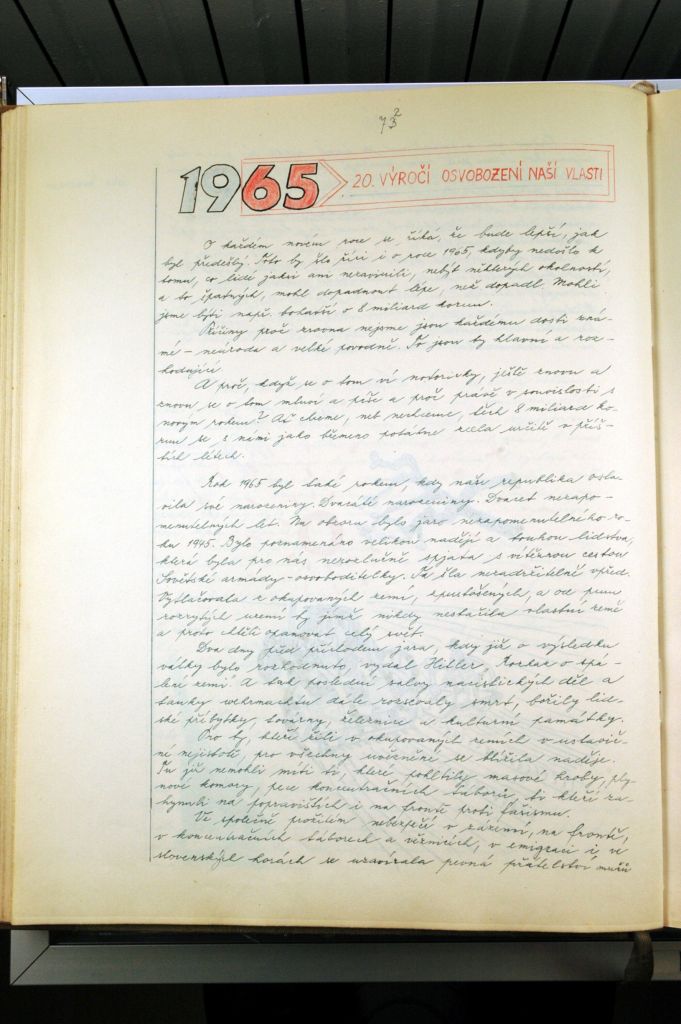 73
2
1965 20. VÝROČÍ OSVOBOZENÍ NAŠÍ VLASTI
O každém novém roce se říká, že bude lepší, jak
byl předešlý. Toto by šlo říci i o roce 1965, kdyby nedošlo k
tomu, co lidé jaksi ani nezavinili, nebýt některých okolností,
a to špatných, mohl dopadnout lépe, než dopadl. Mohli
jsme býti např. bohatší o 8 miliard korun.
Příčiny proč zrovna nejsme jsou každému dosti zná-
mé – neúroda a velké povodně. To jsou ty hlavní a roz-
hodující
A proč, když se o tom ví notoricky, ještě znovu a
znovu se o tom mluví a píše a proč právě v souvislosti s
novým rokem? Ať chceme, neb nechceme, těch 8 miliard ko-
run se s námi jako břemeno potáhne zcela určitě v příš-
tích létech.
Rok 1965 byl také rokem, kdy naše republika osla-
vila své narozeniny. Dvacáté narozeniny. Dvacet nezapo-
menutelných let. Na obzoru bylo jaro nezapomenutelného ro-
ku 1945. Bylo poznamenáno velikou nadějí a touhou lidstva,
která byla pro nás nerozlučně spjata s vítěznou cestou
Sovětské armády – osvoboditelky. Ta šla nezadržitelně vpřed.
Vytlačovala z okupovaných zemí, zpustošených, a od pum
rozrytých území ty jimž nikdy nestačila vlastní země
a proto chtěli opanovat celý svět.
Dva dny před příchodem jara, kdy již o výsledku
války bylo rozhodnuto, vydal Hitler „Rozkaz o spá-
lení zemi. A tak poslední salvy nacistických děl a
tanky wehrmachtu dále rozsévaly smrt, bořily lid-
ské příbytky, továrny, železnice a kulturní památky.
Pro ty, kteří žili v okupovaných zemích v ustavič-
né nejistotě, pro všechny uvězněné se blížila naděje.
Tu již nemohli míti ti, které pohltily masové hroby, ply-
nové komory, pece koncentračních táborů, ti kteří za-
hynuli na popravištích i na frontě proti fašismu.
Ve společně prožitém nebezpečí v zázemí, na frontě,
v koncentračních táborech a věznicích, v emigraci i ve
slovenských horách se uzavírala pevná přátelství mužů